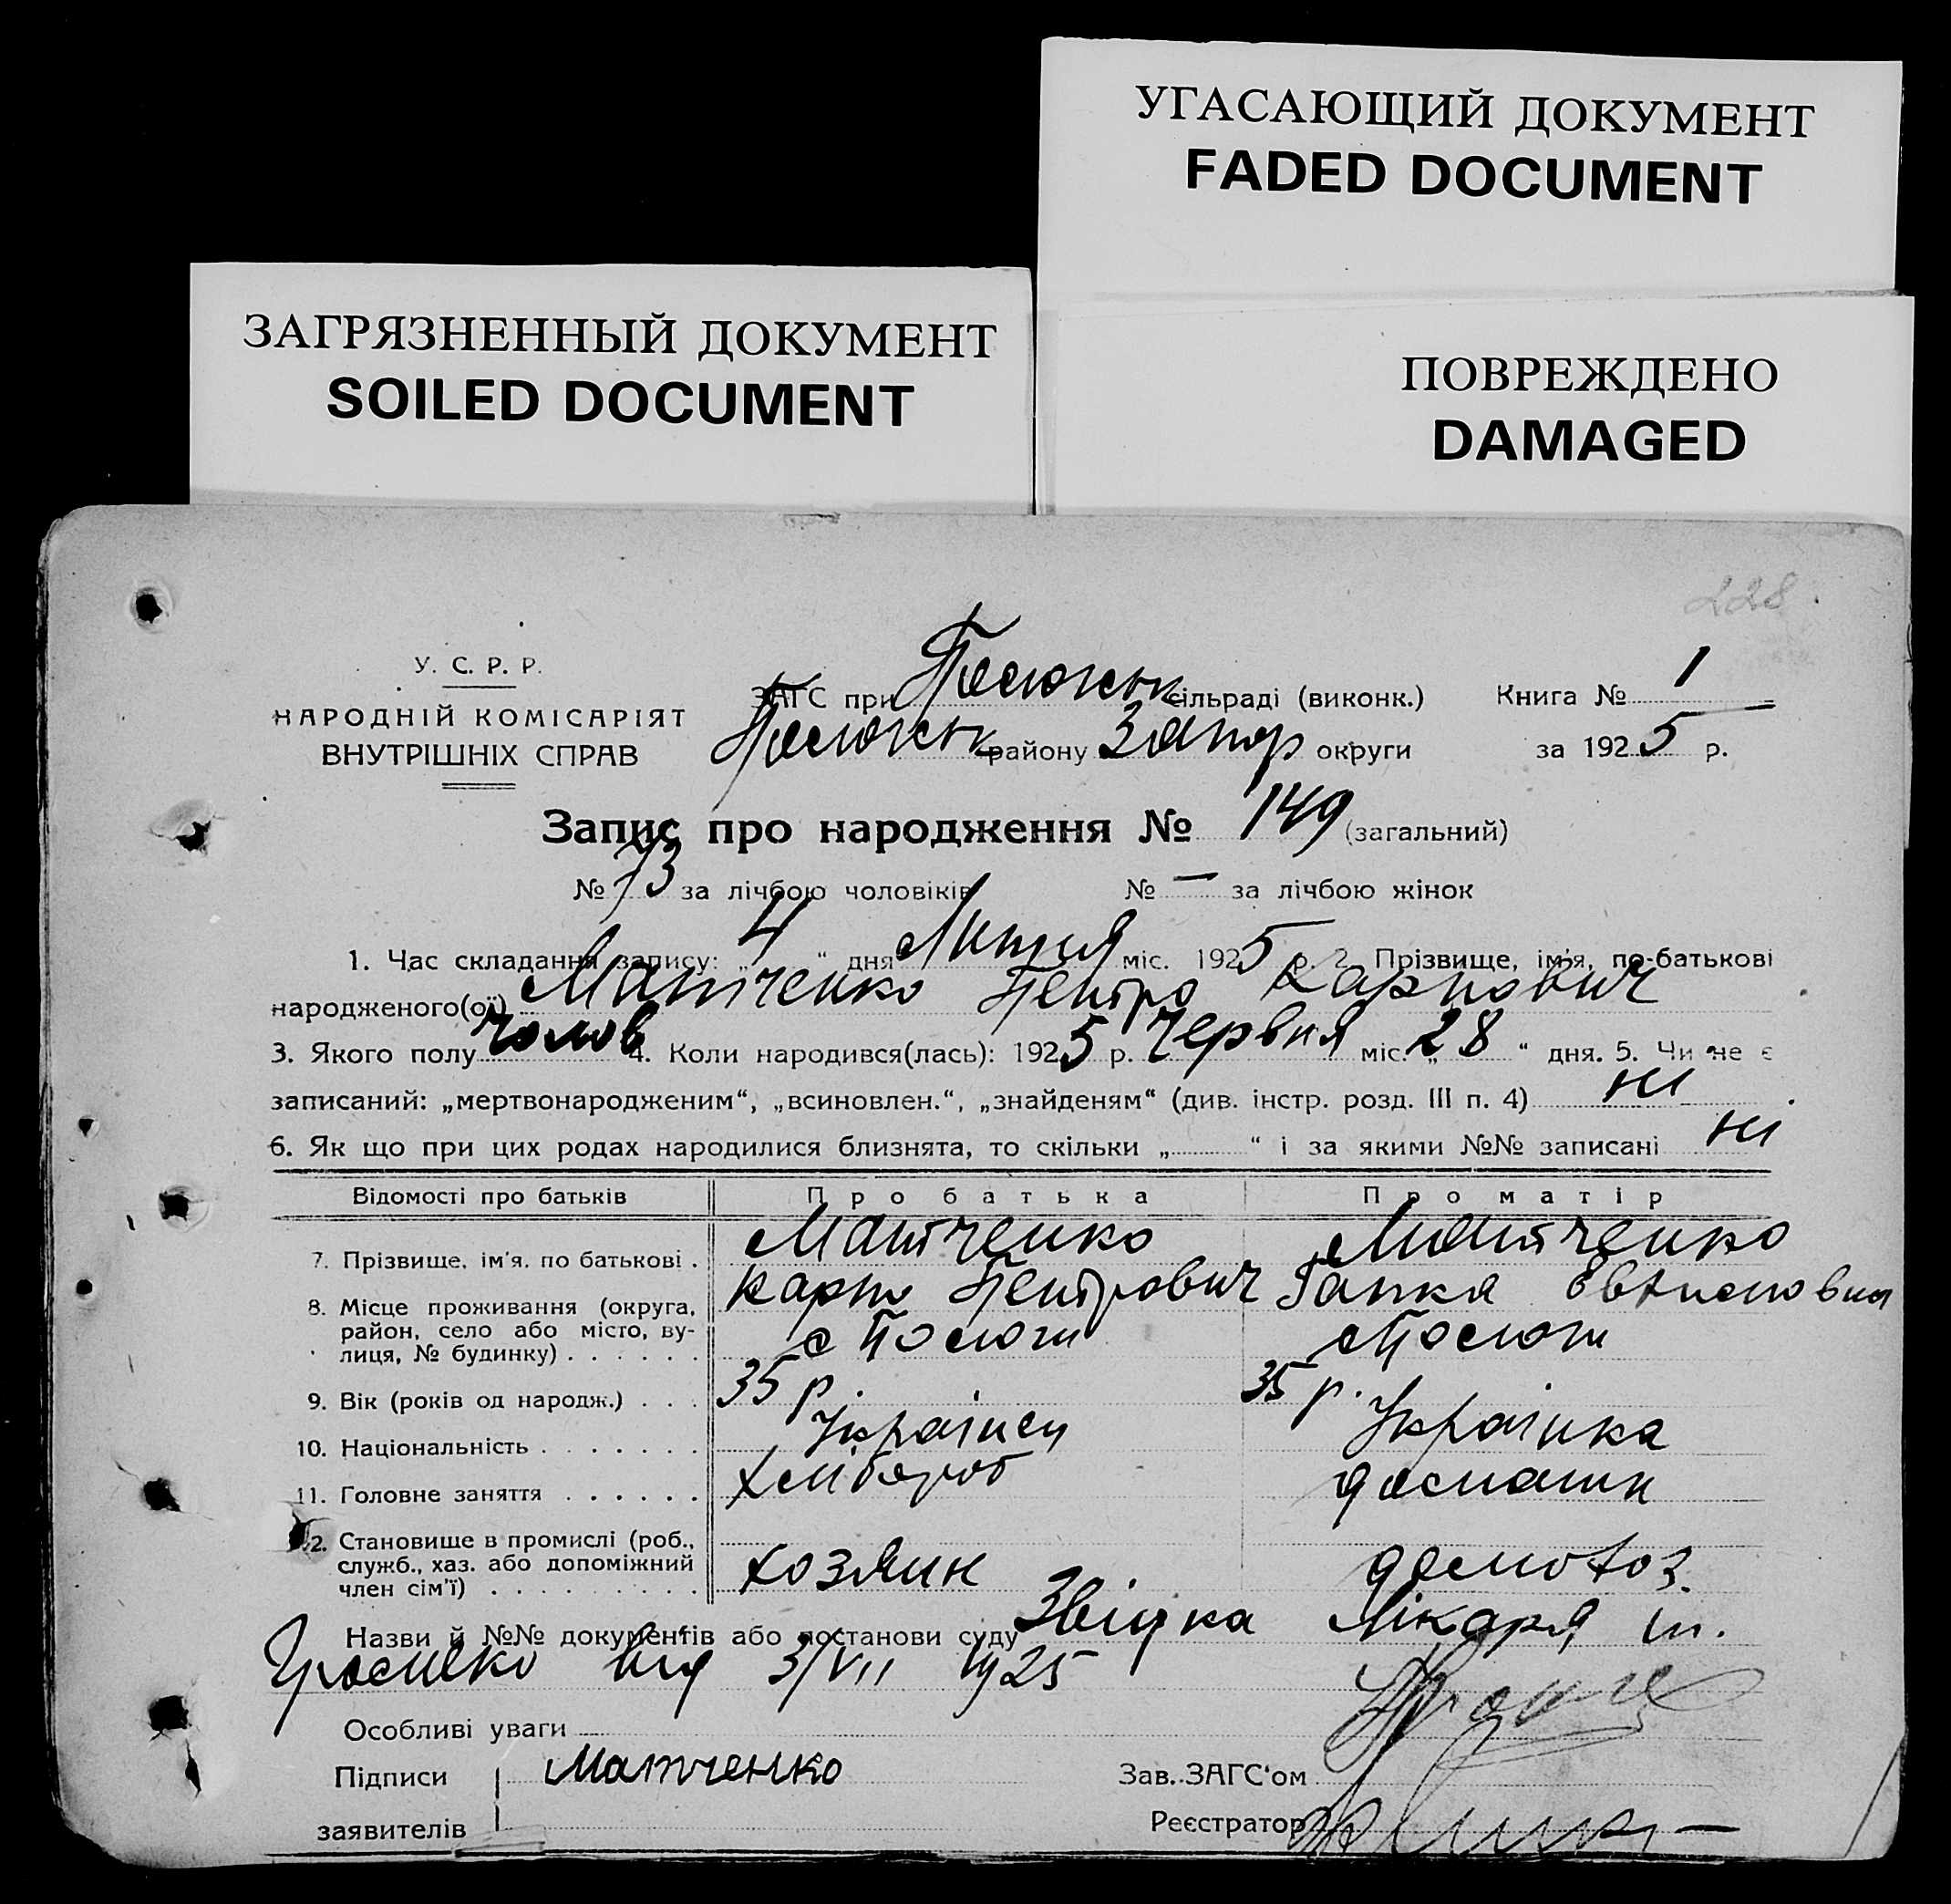 УГАСАЮЩИЙ ДОКУМЕНТ
FADED DOCUMENT
ЗАГРЯЗНЕННЫЙ ДОКУМЕНТ
SOILED DOCUMENT
ПОВРЕЖДЕНО
DAMAGED
228
У. С. Р. Р.
НАРОДНІЙ КОМІСАРІЯТ
ВНУТРІШНІХ СПРАВ
ЗАГС при сільраді (виконк.) Книга № 1
району Запор округи за 1925 р.
Запис про народження № 149 (загальний)
№ 73 за лічбою чоловіків № — за лічбою жінок
1. Час складання запису: „ 4 “ дня Липня міс. 1925 р. 2. Прізвище, ім'я, по-батькові
народженого(ої) Матченко Петро Карпович
3. Якого полу чолов 4. Коли народився(лась): 1925 р. Червня міс. „ 28 “ дня. 5. Чи не є
записаний: „мертвонародженим“, „всиновлен.“, „знайденям“ (див. інстр. розд. III п. 4) ні
6. Як що при цих родах народилися близнята, то скільки „ “ і за якими №№ записані ні
Відомості про батьків Про батька Про матір
7. Прізвище, ім'я, по батькові . Матченко Карпо Петрович Матченко Гапка
8. Місце проживання (округа, район, село або місто, вулиця, № будинку) . . . . . . с Пологи с Пологи
9. Вік (років од народж.) . . . 35 р 35 р.
10. Національність . . . . . . . Українец Українка
11. Головне заняття . . . . . . хлібороб домашн
12. Становище в промислі (роб., служб., хаз. або допоміжний член сім'ї) . . . . . . . . . хозяин домохоз.
Назви й №№ документів або постанови суду Звістка лікаря
від 3/VII 1925
Особливі уваги
Підписи Матченко Зав. ЗАГС'ом
заявителів Реєстратор